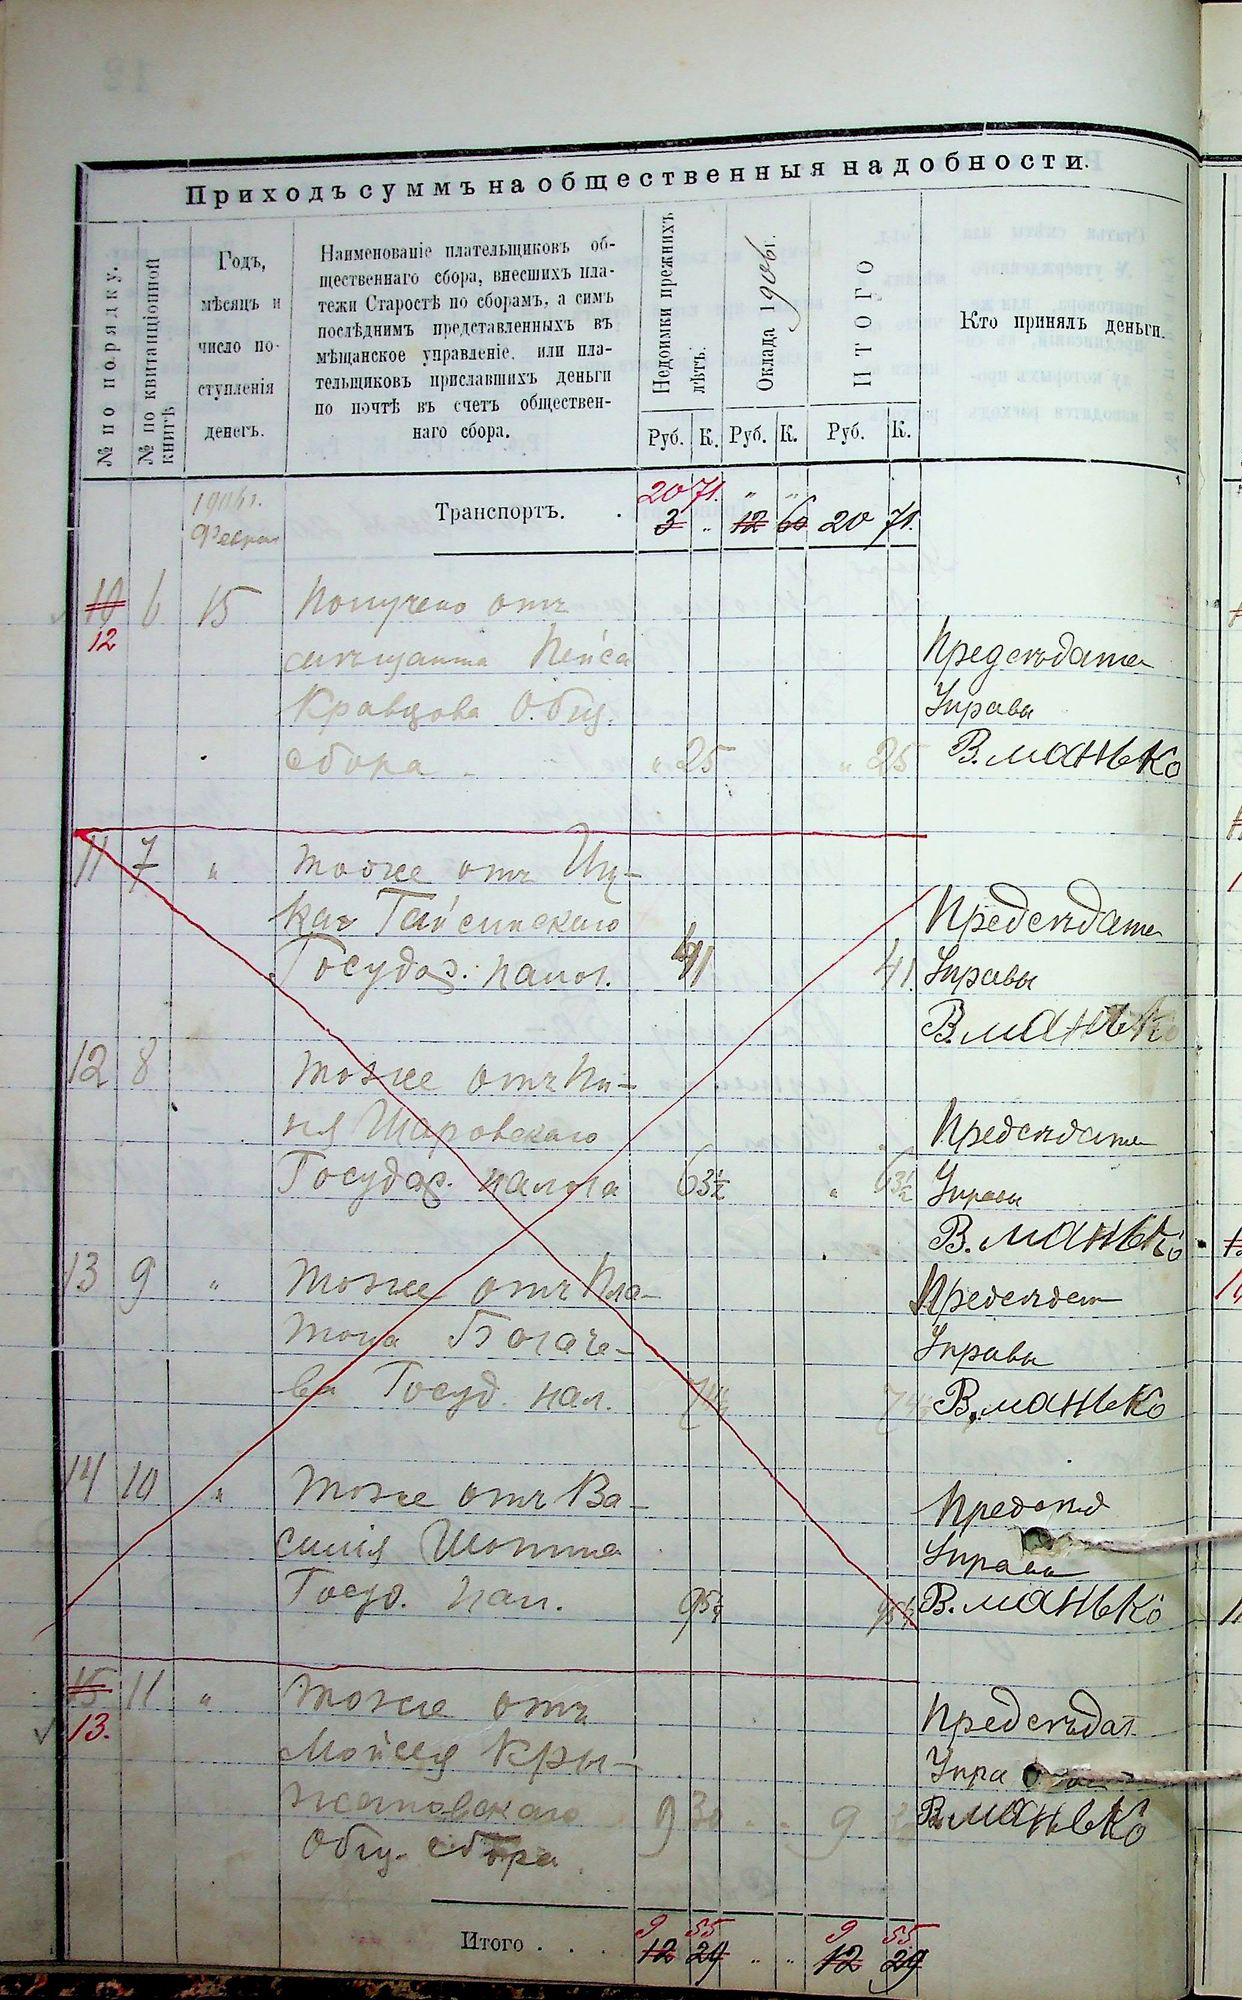 Приходъ суммъ на общественныя надобности.
№ по порядку.
№ по квитанціонной
книгѣ
Годъ,
мѣсяцъ и
число по-
ступленія
денегъ.
Наименованіе плательщиковъ об-
щественнаго сбора, внесшихъ пла-
тежи Старостѣ по сборамъ, а симъ
послѣднимъ представленныхъ въ
мѣщанское управленіе, или пла-
тельщиковъ приславшихъ деньги
по почтѣ въ счетъ обществен-
наго сбора.
Недоимки прежнихъ
лѣтъ.
Оклада 1906 г.
ИТОГО
Кто принялъ деньги.
Руб. К. Руб. К. Руб. К.
1906 г.
20 71. " "
Транспортъ. 3 " 12 60 20 71.
10 6 15 Получено отъ
12
мѣщанина Пейса Предсѣдатель
Кравцова Общ. Управы
сбора " 25 " 25 В. Манько
11 7 " тоже отъ Иц-
ка Гайсинскаго Предсѣдатель
Государ. налог. 41 41. Управы
В. Манько
12 8 тоже отъ Пи-
Шаровскаго Предсѣдатель
Государ. налога 63½ " 63½ Управы
В. Манько
13 9 " тоже отъ Пла- Предсѣдат
тона Богаче- Управы
ва Госуд. нал. 74½ 74½ В. Манько
14 10 " тоже отъ Ва- Предсѣд
силія Управы
Госуд. нал. В. Манько
15 11 " тоже отъ Предсѣдат.
13. Мойсея Кры- Упра
жановскаго 9 30 " " 9 В. Манько
Общ. сбора
9 55 9 55
Итого . . . 12 29 " " 12 29